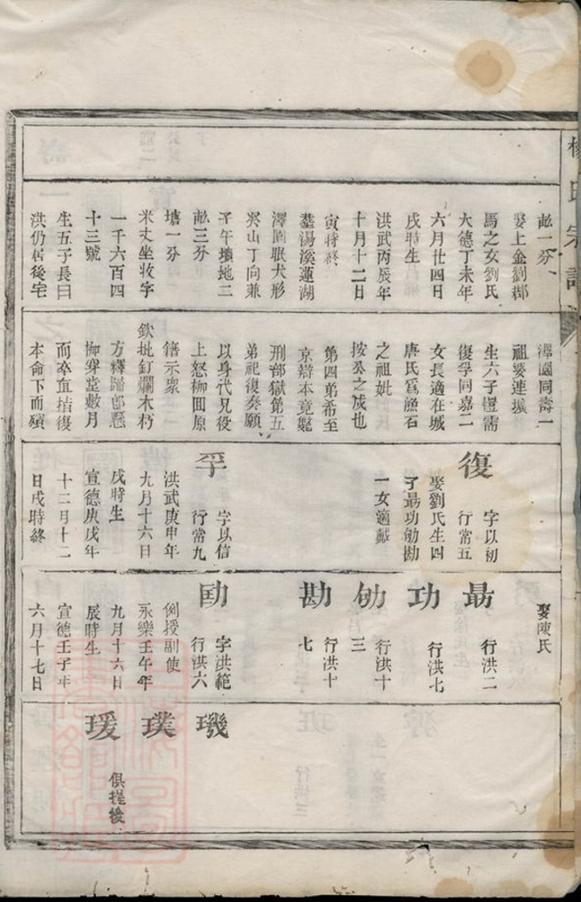 楊氏宗譜
畝一分
娶上金劉郡
馬之女劉氏
大德丁未年
六月廿四日
戌時生
洪武丙辰年
十月十二日
寅時終
塟湯溪蓮湖
澤園眠犬形
癸山丁向兼
子午墳地二
畝三分
塘一分
米丈坐收字
一千六百四
十三號
生五子長曰
洪仍居後宅
澤園同壽一
祖婆連城
生六子豐需
復孚同嘉二
女長適在城
唐氏爲漁石
之祖妣
按公之成也
第四弟希至
京辯本竟斃
刑部獄第五
弟祀復奏願
以身代兄役
上怒柳囬原
籍示衆
欽批釘爛木朽
方釋歸卽懸
枷穿堂數月
而卒直指復
本命下而殞
復 字以初
行常五
娶劉氏生四
子勗功劬勘
一女適戴
孚 字以信
行常九
洪武庚申年
九月十六日
戌時生
宣德庚戌年
十二月十二
日戌時終
娶陳氏
勗 行洪二
功 行洪七
劬 行洪十
三
勘 行洪十
七
勆 字洪範
行洪六
例授副使
永樂壬午年
九月十六日
辰時生
宣德壬子年
六月十七日
璣
璞
瑗
俱提後